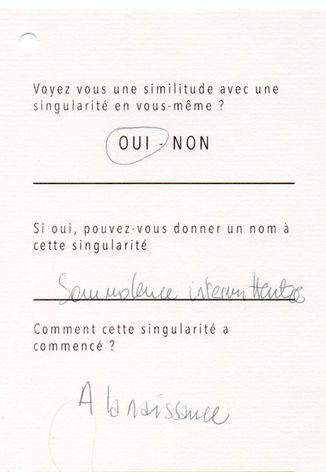 Voyez vous une similitude avec une
singularité en vous-même ?
OUI - NON
Si oui, pouvez-vous donner un nom à
cette singularité
Somnolence intermittente
Comment cette singularité a
commencé ?
A la naissance